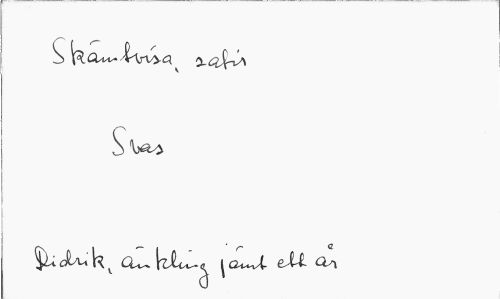 Skämtvisa, satir
Svas
Didrik, änkling jämt ett år